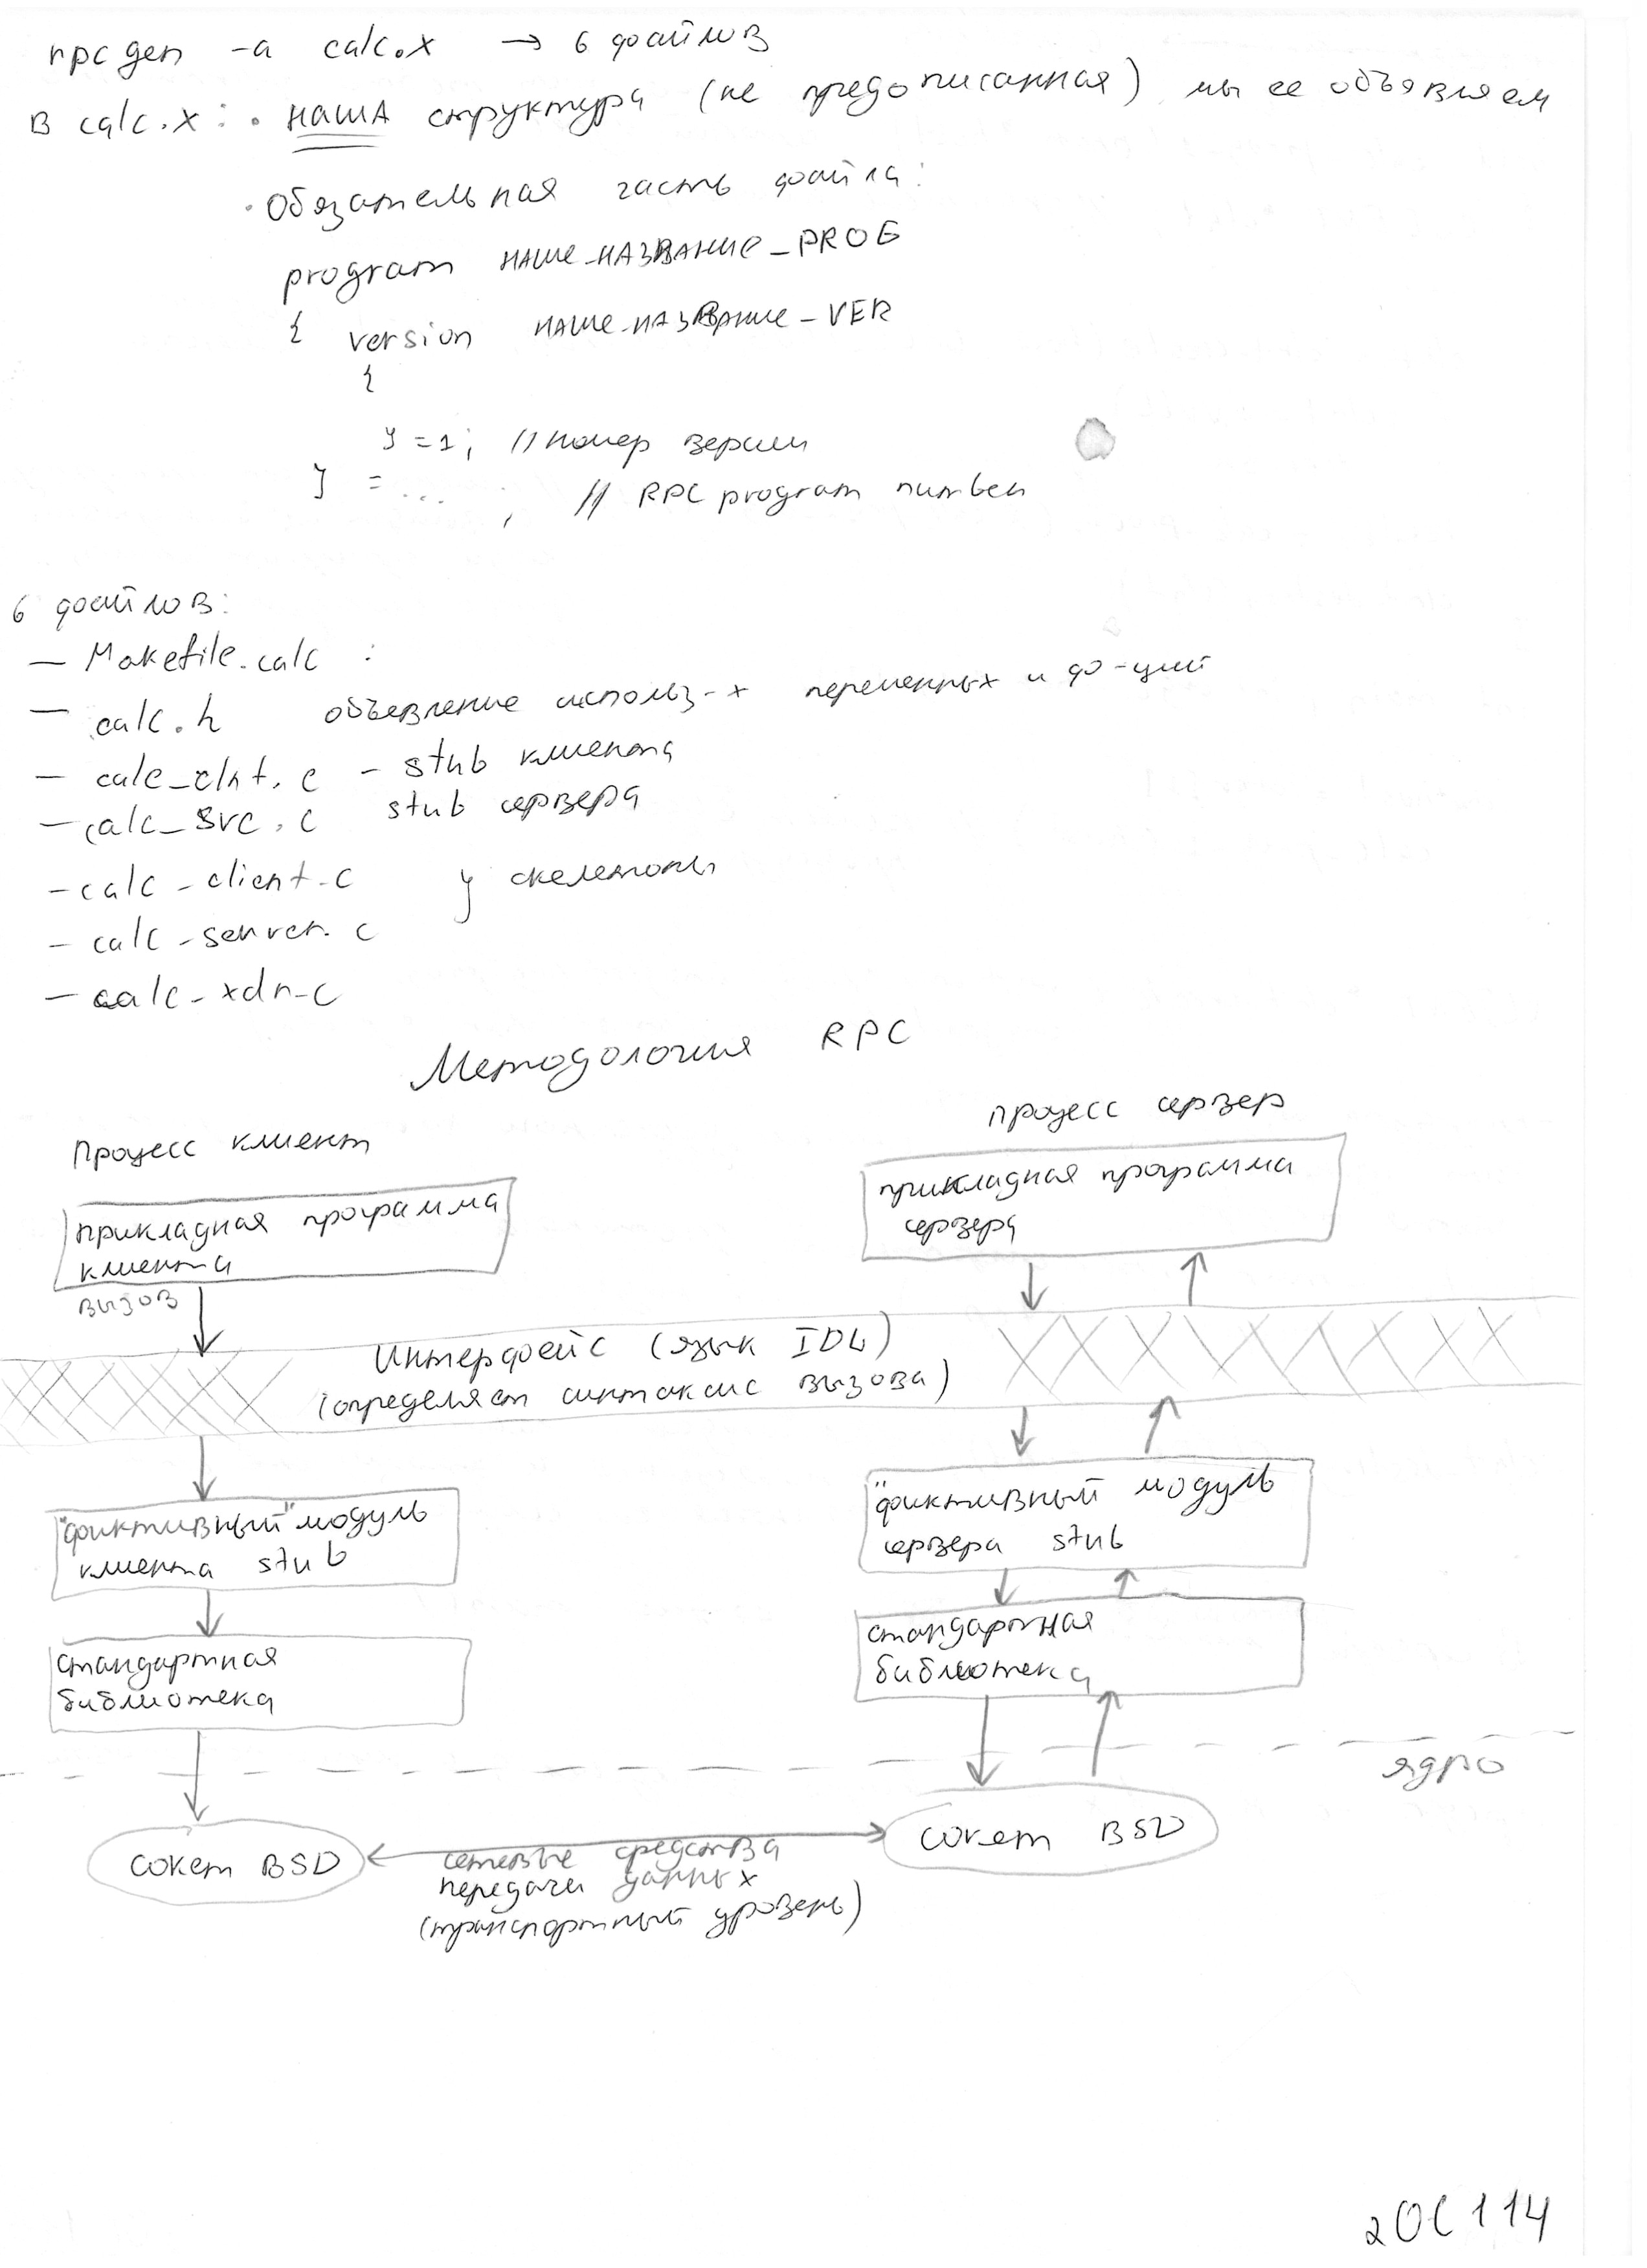 rpcgen -a calc.x → 6 файлов
в calc.x: • НАША структура (не предописанная) мы ее объявляем
• Обязательная часть файла:
program НАШЕ_НАЗВАНИЕ_PROG
{ version НАШЕ_НАЗВАНИЕ_VER
{
} = 1; // номер версии
} = ... ; // RPC program number
6 файлов:
— Makefile.calc :
— calc.h объевление использ-х переменных и ф-ций
— calc_clnt.c - stub клиента
— calc_svc.c stub сервера
- calc_client.c } скелетоны
- calc_server.c
— calc_xdr.c
Методология RPC
Процесс клиент
процесс сервер
прикладная программа
клиента
прикладная программа
сервера
вызов
Интерфейс (язык IDL)
(определяет синтаксис вызова)
"фиктивный" модуль
клиента stub
"фиктивный модуль
сервера stub
стандартная
библиотека
стандартная
библиотека
ядро
сокет BSD
сокет BSD
сетевые средства
передачи данных
(транспортный уровень)
2ОС114